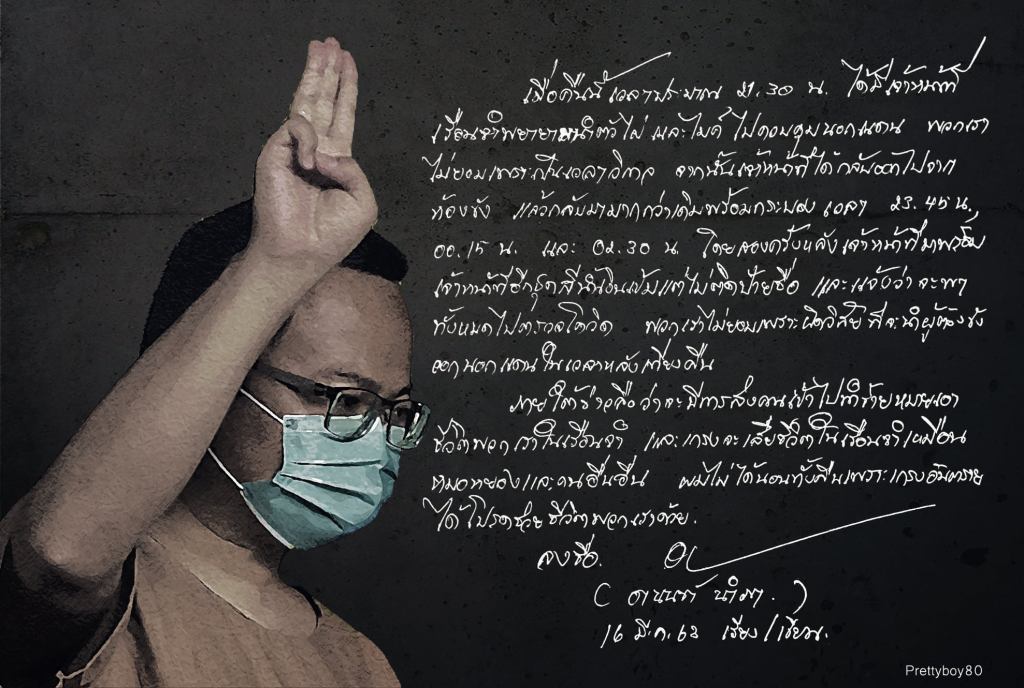 เมื่อคืนนี้ เวลาประมาณ 21.30 น. ได้มีเจ้าหน้าที่
เรือนจำพยายามนำตัวไผ่ และไมค์ ไปควบคุมนอกแดน พวกเรา
ไม่ยอมเพราะเป็นเวลาวิกาล จากนั้นเจ้าหน้าที่ได้กลับออกไปจาก
ห้องขัง แล้วกลับมามากกว่าเดิมพร้อมกระบอง เวลา 23.45 น,
00.15 น. และ 02.30 น. โดยสองครั้งหลังเจ้าหน้าที่มาพร้อม
เจ้าหน้าที่อีกชุดสีน้ำเงินเข้มแต่ไม่ติดป้ายชื่อ และแจ้งว่าจะพา
ทั้งหมดไปตรวจโควิด พวกเราไม่ยอมเพราะผิดวิสัยที่จะนำผู้ต้องขัง
ออกนอกแดนในเวลาหลังเที่ยงคืน
ภายใต้ข่าวลือว่าจะมีการส่งคนเข้าไปทำร้ายหมายเอา
ชีวิตพวกเราในเรือนจำ และเกรงจะเสียชีวิตในเรือนจำเหมือน
หมอหยองและคนอื่นอื่น ผมไม่ได้นอนทั้งคืนเพราะเกรงอันตราย
ได้โปรดช่วยชีวิตพวกเราด้วย.
ลงชื่อ.
( อานนท์ นำภา. )
16 มี.ค. 63 เรียง/เขียน.
Prettyboy80